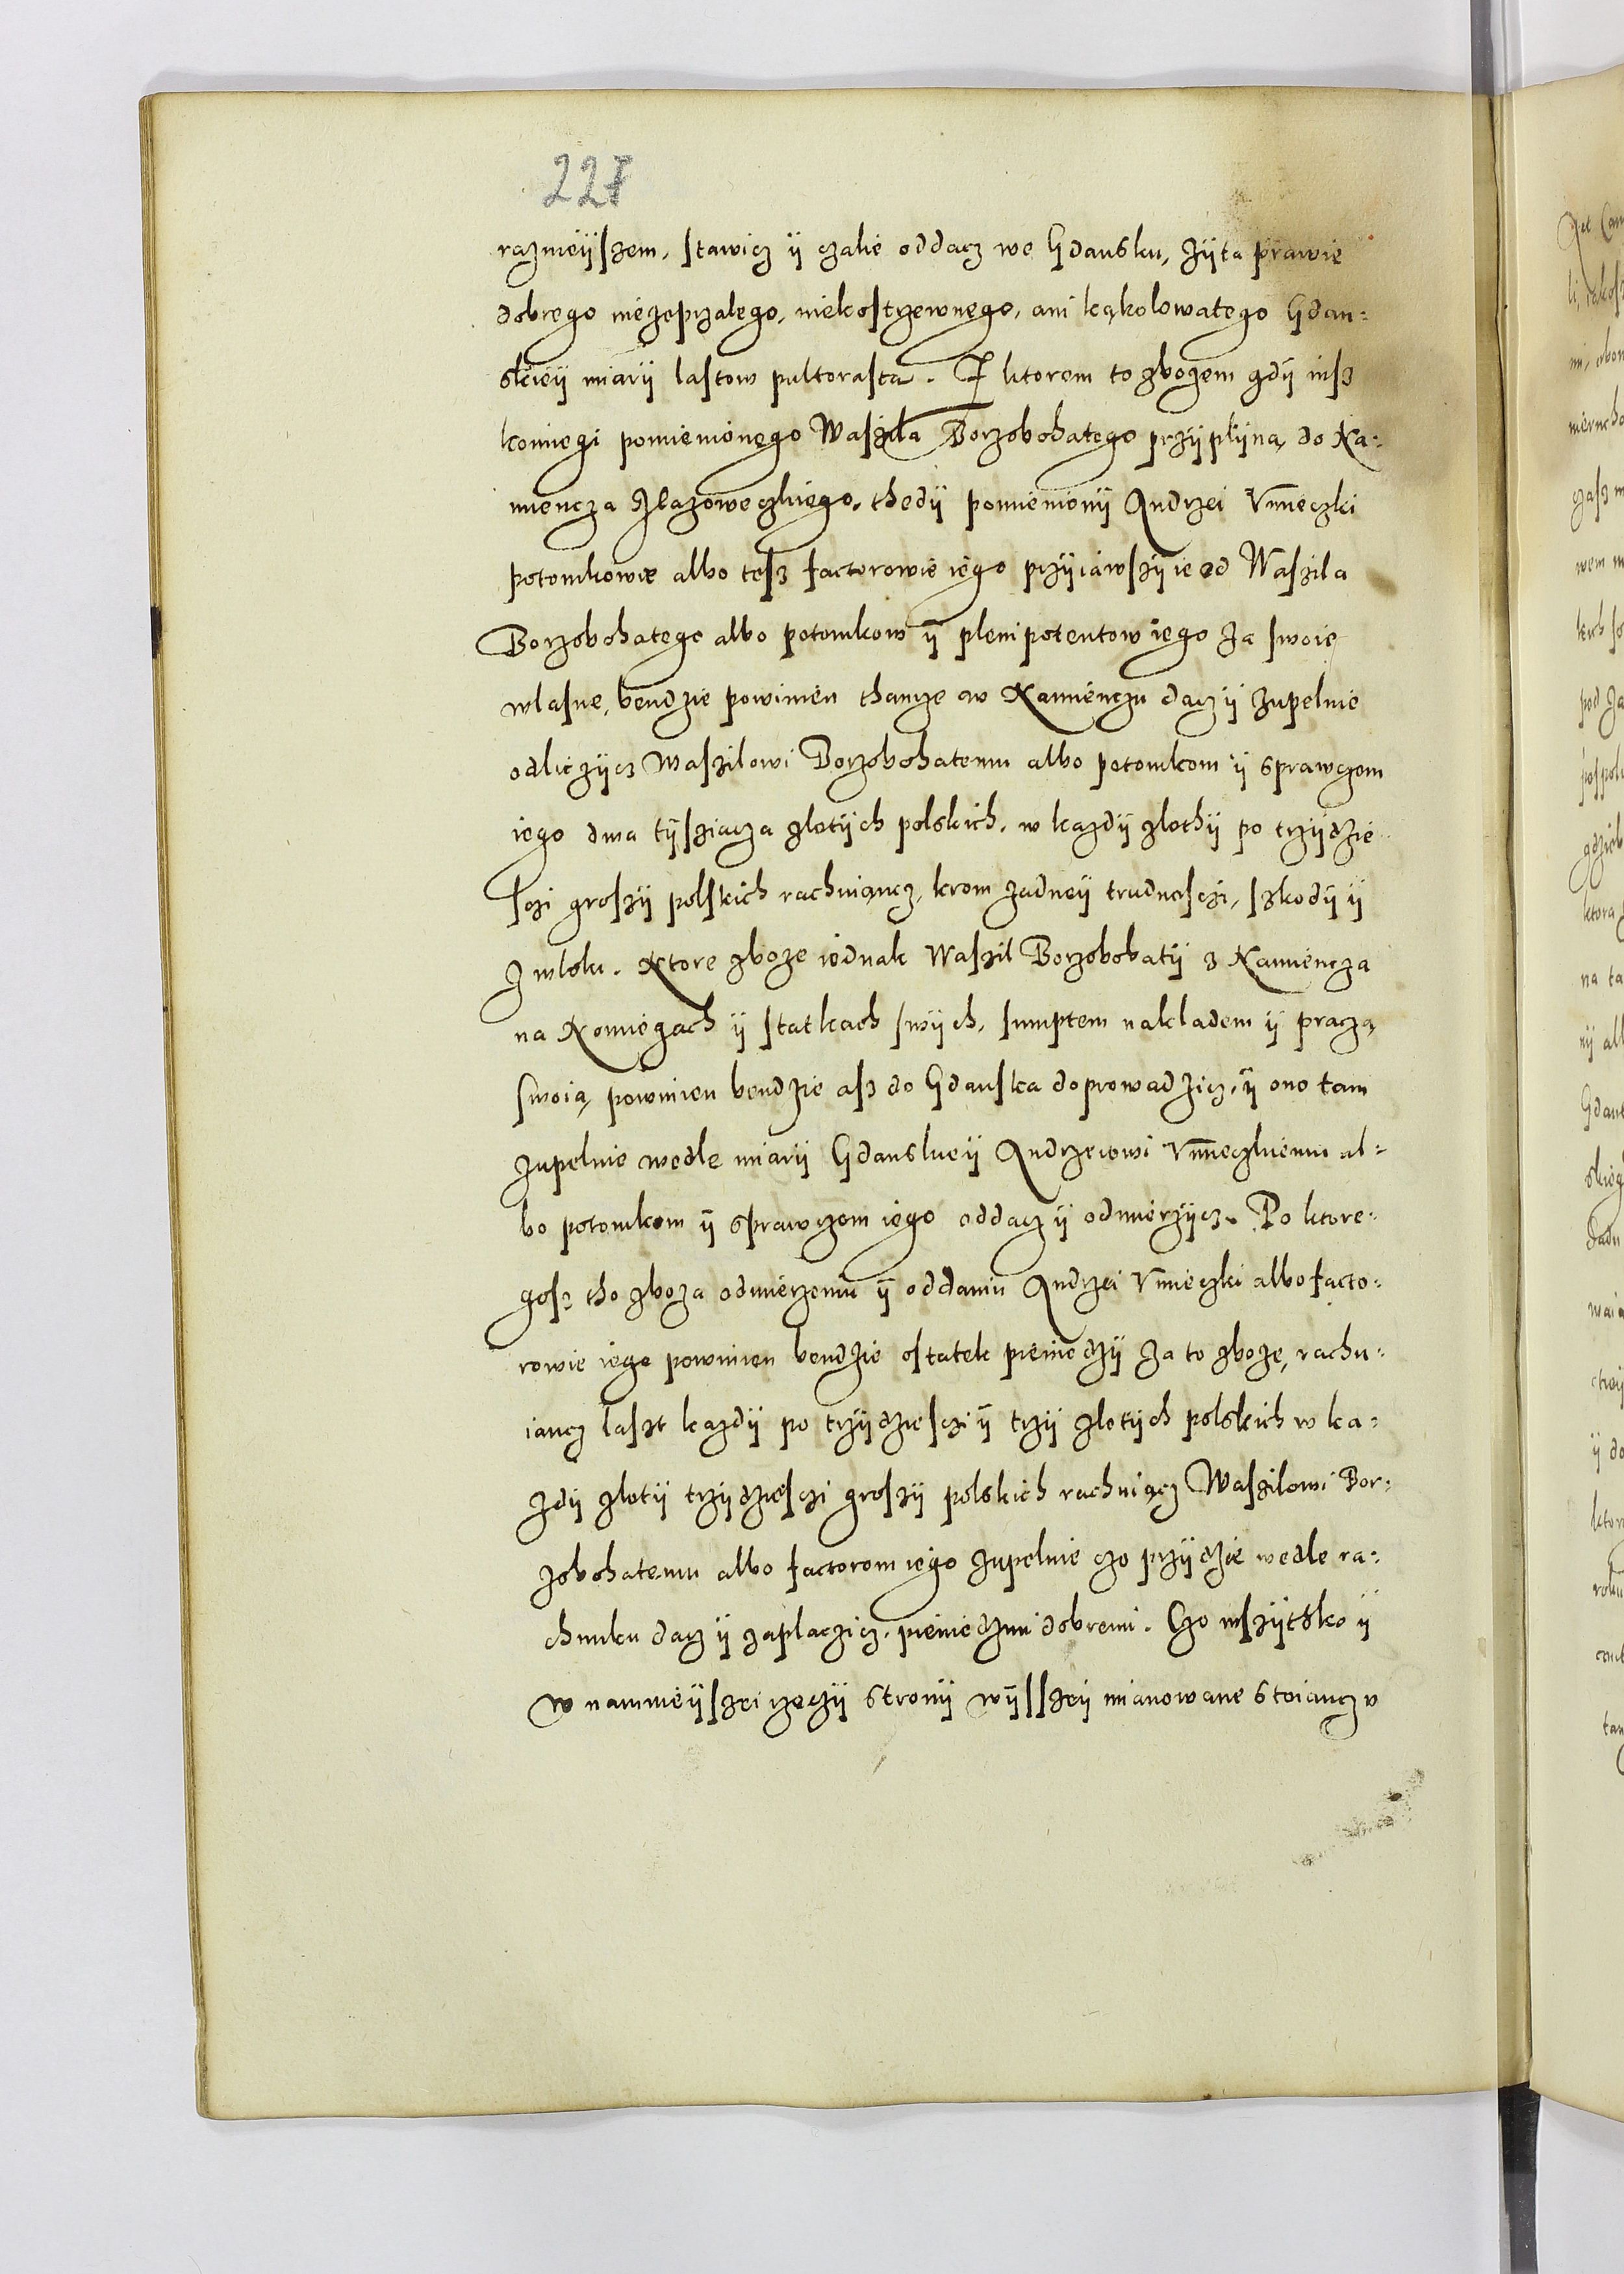 227
raznieÿszem, stawicz ÿ czalie oddacz we Gdansku, zÿta prawie
dobrego niezoprzalego, niekostrzewnego, ani kąkolowatego Gdan=
skieÿ miarÿ lastow pultorasta. Z ktorem to zbozem gdÿ iusz
komiegi pomienionego Waszila Borzobohatego przÿplÿną do Ka=
miencza Zlazoweczkiego, thedÿ pomienionÿ Andrzei Vnieczki
potomkowie albo tesz factorowie iego przÿiawszÿ ie od Waszila
Borzobohatego albo potomkow ÿ plenipotentow iego za swoie
wlasne, bendzie powinien thamze w Kamienczu dacz ÿ zupelnie
odliczÿcz Waszilowi Borzobohatemu albo potomkom ÿ sprawczom
iego dwa tÿsziacza zlotÿch polskich, w kazdÿ zlothÿ po trzÿdzie
sczi groszÿ polskich rachuiancz, krom zadneÿ trudnosczi, szkodÿ ÿ
zwloki. Ktore zboze iednak Waszil Borzobohatÿ z Kamiencza
na Komiegach ÿ statkach swÿch, sumptem nakladem ÿ praczą
swoią, powinien bendzie asz do Gdanska doprowadzicz, ÿ ono tam
zupelnie wedle miarÿ Gdanskieÿ Andrzeiowi Vnieczkiemu al=
bo potomkom ÿ sprawczom iego oddacz ÿ odmierzÿcz. Po ktore=
gosz tho zboza odmierzeniu ÿ oddaniu Andrzei Vnieczki albo facto=
rowie iego powinien bendzie ostatek pieniedzÿ za to zboze, rachu=
iancz laszt kazdÿ po trzÿdziesczi ÿ trzÿ zlotÿch polskich w ka=
zdÿ zlotÿ trzÿdziesczi groszÿ polskich rachuiącz Waszilowi Bor=
zobohatemu albo factorom iego zupelnie czo przÿdzie wedle ra=
chunku dacz ÿ zaplaczicz, pieniedzmi dobremi. Czo wszÿtsko ÿ
w namnieÿszei rzeczÿ stronÿ wÿsszeÿ mianowane stoiancz v